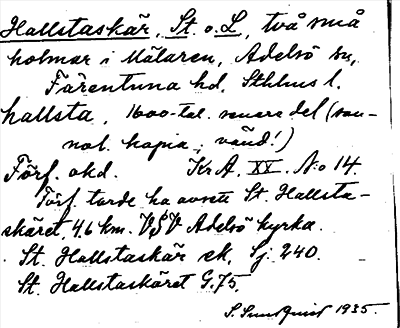 Hallstaskär, St. o. L., två små
holmar i Mälaren, Adelsö sn,
Färentuna hd, Sthlms l.
hallsta, 1600-tal. senare del (san-
nol. kopia; vänd!)
Förf. okd. Kr A XX. N:o 14.
Förf. torde ha avsett St. Hallsta-
skäret, 4.6 km. VSV Adelsö kyrka.
St. Hallstaskär ek, Sj. 240.
St. Hallstaskäret G.75.
S. Sundquist 1935.